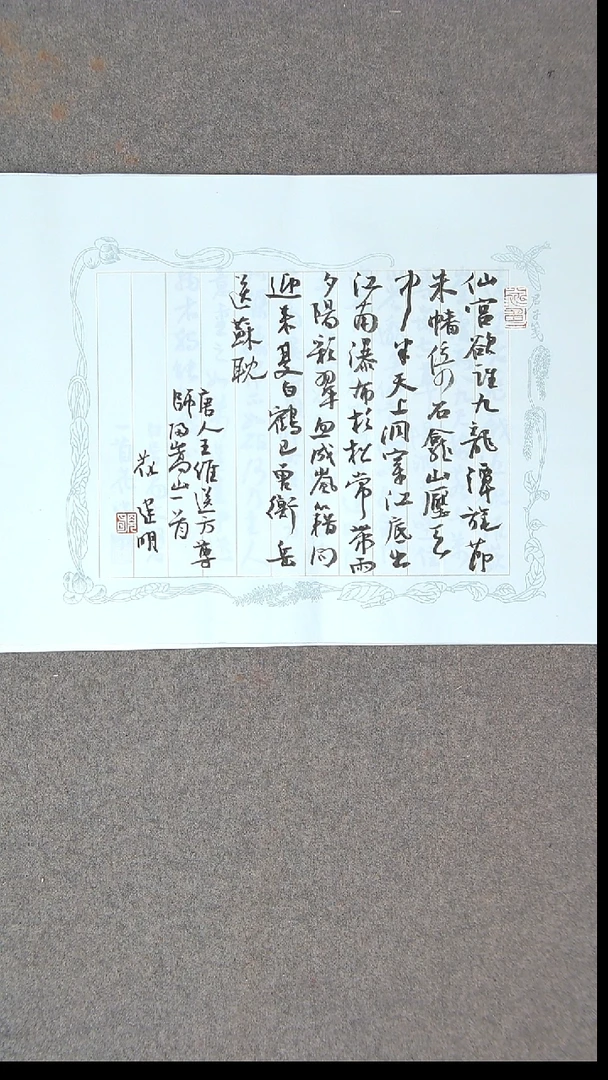 仙官欲往九龍潭旄節
朱幡倚石龕山壓天
中半天上洞穿江底出
江南瀑布杉松常帶雨
夕陽彩翠忽成嵐籍問
迎来雙白鶴已曾衡岳
送蘇耽
唐人王維送方尊
師歸嵩山一首
建明